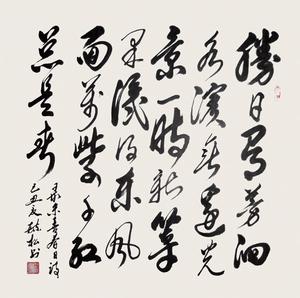 勝日尋芳泗
水濱無邊光
景一時新等
閒識得東風
面萬紫千紅
總是春
录朱熹春日詩
丑夏松书